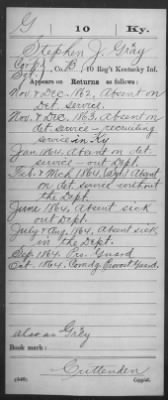 G 10 Ky.
Stephen J. Gray
Corpl., Co. B, 10 Reg't Kentucky Inf.
Appears on Returns as follows:
Nov & Dec. 1862, Absent on
Det. Service.
Nov. & Dec. 1863, Absent on
det. service - recruiting
service in Ky
Jan. 1864. Absent on det.
service - out Dept.
Feb. & Mch 1864, Absent
on det. service without
the Dept.
June 1864, Absent sick
out Dept.
July & Aug. 1864, Absent sick
in the Dept.
Sep 1864 Pro. Guard
Oct. 1864. Comdg. Provost Guard.
also as Gréy
Book mark:
Crittenden
(546) Copyist.